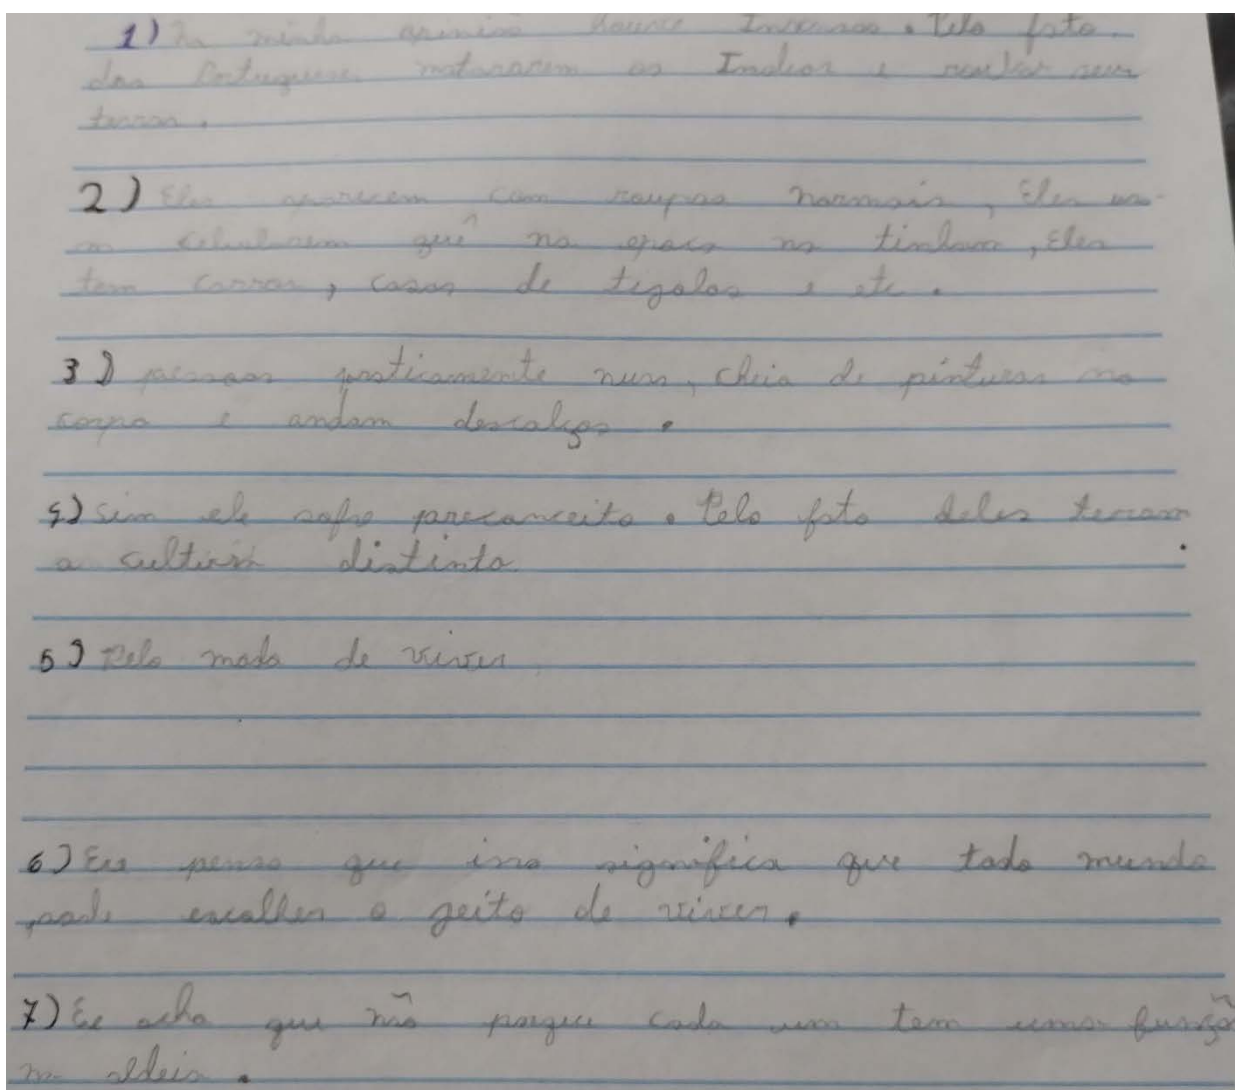 1) Na minha opinião houve Invasao. Pelo fato
dos Portugueses matararem os Indios e roubar seus
terras.
2) Eles aparecem com roupas normais, Eles us-
m celul sem quê na epoca no tinham, Eles
tem carros, casas de tigolos e etc.
3) pessoas praticamente nuas, cheia de pinturas no
corpo e andam descalços.
4) Sim ele sofre preconceito. Pelo fato deles terem
a cultura distinta.
5) Pelo modo de viver
6) Eu penso que isso significa que todo mundo
pode escolher o geito de viver.
7) Eu acho que não porque cada um tem uma função
na aldeia.